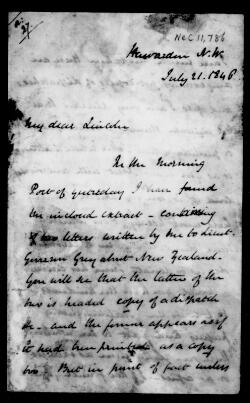 NeC 11,786
Hawarden N.W.
July 21. 1846
My dear Lincoln
In the Morning
Post of yesterday I have found
the inclosed extract - consisting
of two letters written by me to Lieut.
Governor Grey about New Zealand.
You will see that the latter of the
two is headed copy of a dispatch
&c - and the former appears as if
it had been printed as a copy
too. But in point of fact unless